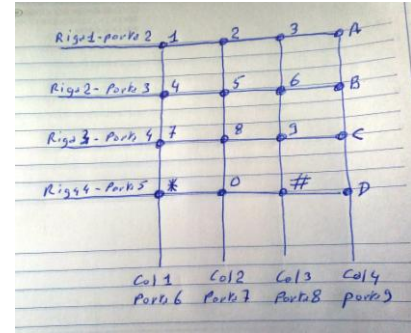 Riga1-porta 2 1 2 3 A
Riga2-Porta 3 4 5 6 B
Riga3-Porta 4 7 8 9 C
Riga4-Porta 5 * 0 # D
Col1 Col2 Col3 Col4
Porta6 Porta7 Porta8 porta9